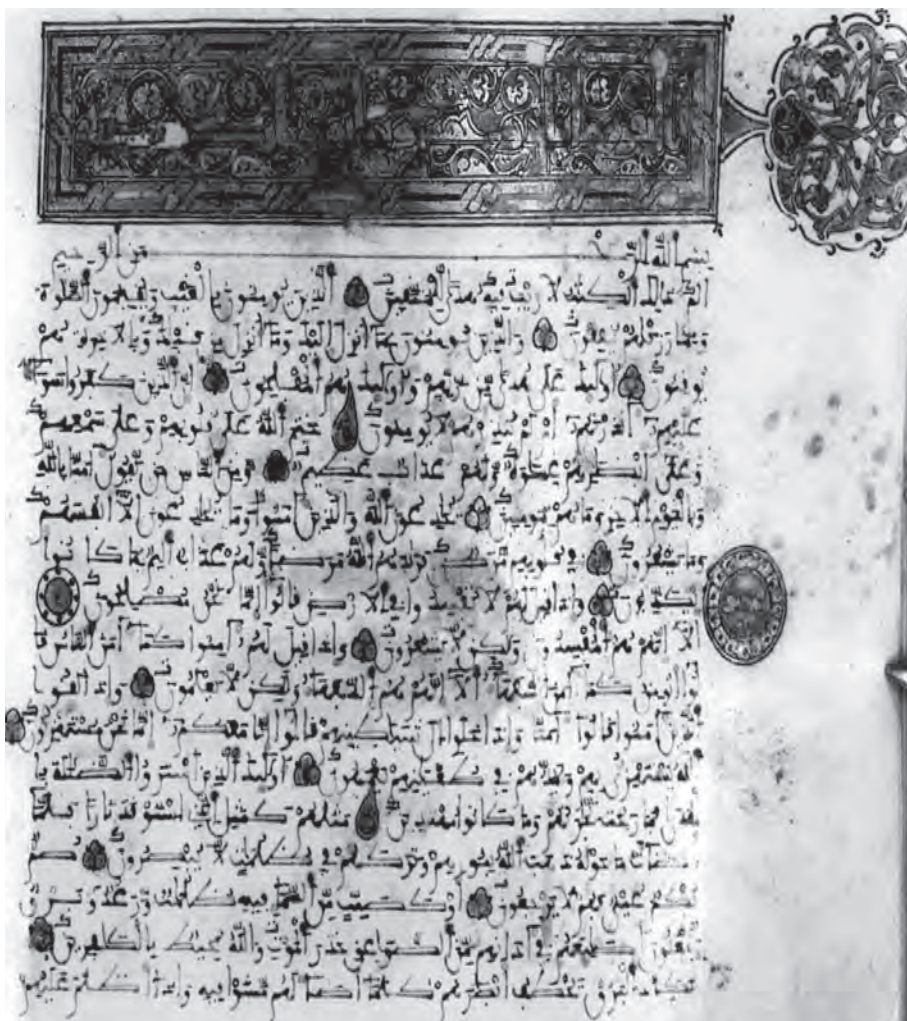 بسم الله الرحمن الرحيم
الم ذلك الكتب لا ريب فيه هدى للمتقين الذين يومنون بالغيب ويقيمون الصلوة
ومما رزقنهم ينفقون والذين يومنون بما أنزل إليك وما أنزل من قبلك وبالاخرة هم
يوقنون أوليك على هدى من ربهم وأوليك هم المفلحون إن الذين كفروا سوا
عليهم آنذرتهم أم لم تنذرهم لا يومنون ختم الله على قلوبهم وعلى سمعهم
وعلى أبصرهم غشوة ولهم عذاب عظيم ومن الناس من يقول امنا بالله
وباليوم الاخر وما هم بمومنين يخدعون الله والذين امنوا وما يخدعون إلا أنفسهم
وما يشعرون في قلوبهم مرض فزادهم الله مرضا ولهم عذاب أليم بما كانوا
يكذبون وإذا قيل لهم لا تفسدوا في الارض قالوا إنما نحن مصلحون
ألا إنهم هم المفسدون ولكن لا يشعرون وإذا قيل لهم امنوا كما امن الناس قا
لوا أنومن كما امن السفهاء ألا إنهم هم السفهاء ولكن لا يعلمون وإذا لقوا
الذين امنوا قالوا امنا وإذا خلوا إلى شيطينهم قالوا إنا معكم إنما نحن مستهزءون
الله يستهزئ بهم ويمدهم في طغينهم يعمهون أوليك الذين اشتروا الضللة با
لهدى فما ربحت تجرتهم وما كانوا مهتدين مثلهم كمثل الذي استوقد نارا فلما
أضاءت ما حوله ذهب الله بنورهم وتركهم في ظلمت لا يبصرون صم
بكم عمي فهم لا يرجعون أو كصيب من السماء فيه ظلمت ورعد وبرق
يجعلون أصبعهم في اذانهم من الصوعق حذر الموت والله محيط بالكفرين
يكاد البرق يخطف أبصرهم كلما أضاء لهم مشوا فيه وإذا أظلم عليهم